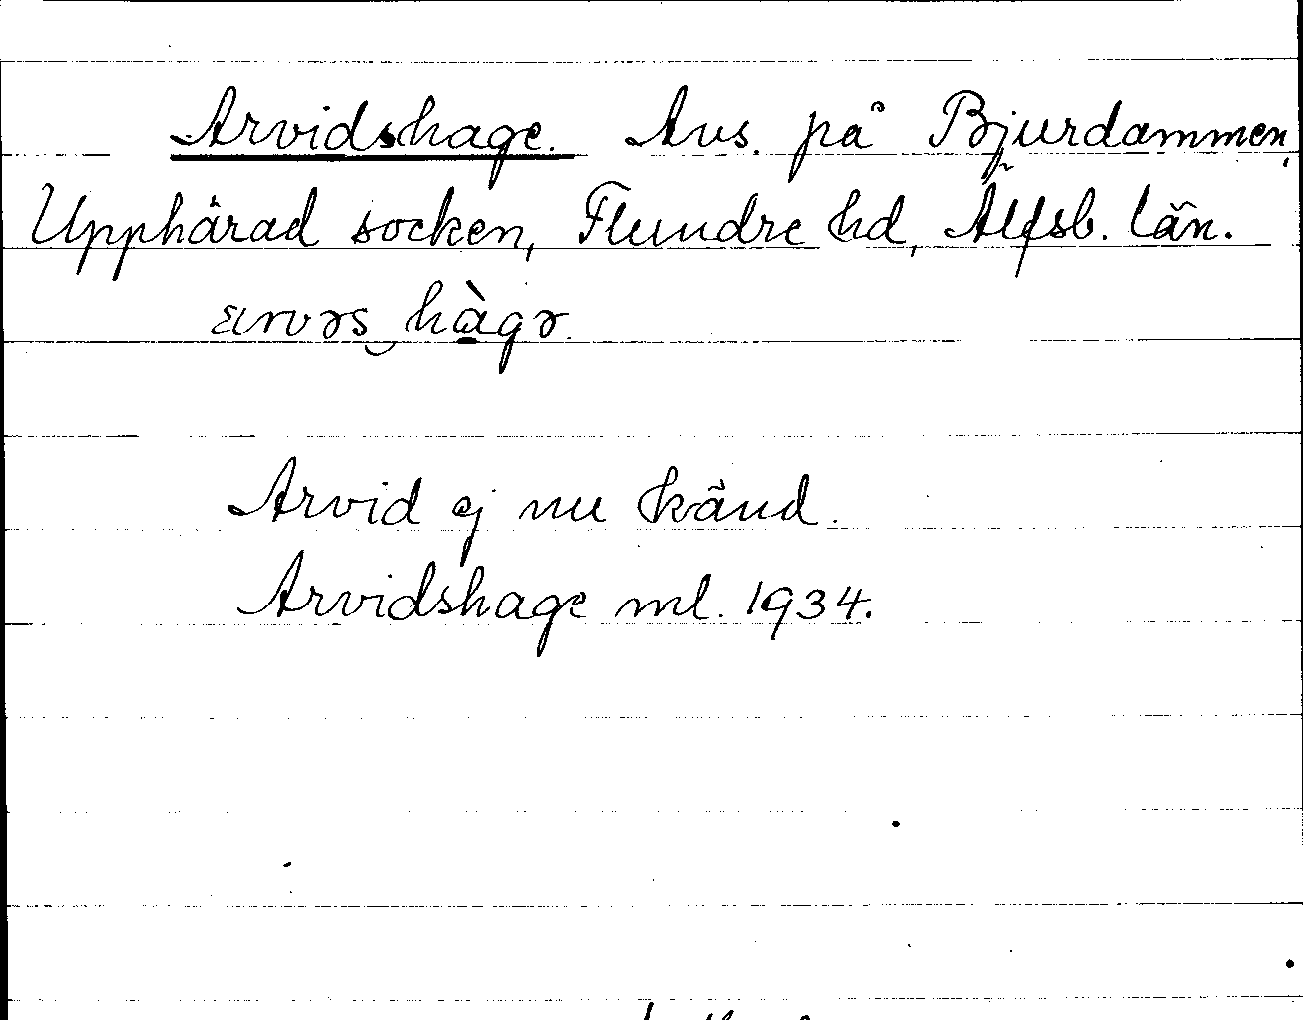 Arvidshage. Avs. på Bjurdammen,
Upphärad socken, Flundre hd, Älfsb. län.
arvəs hàgə.
Arvid ej nu känd.
Arvidshage ml. 1934.